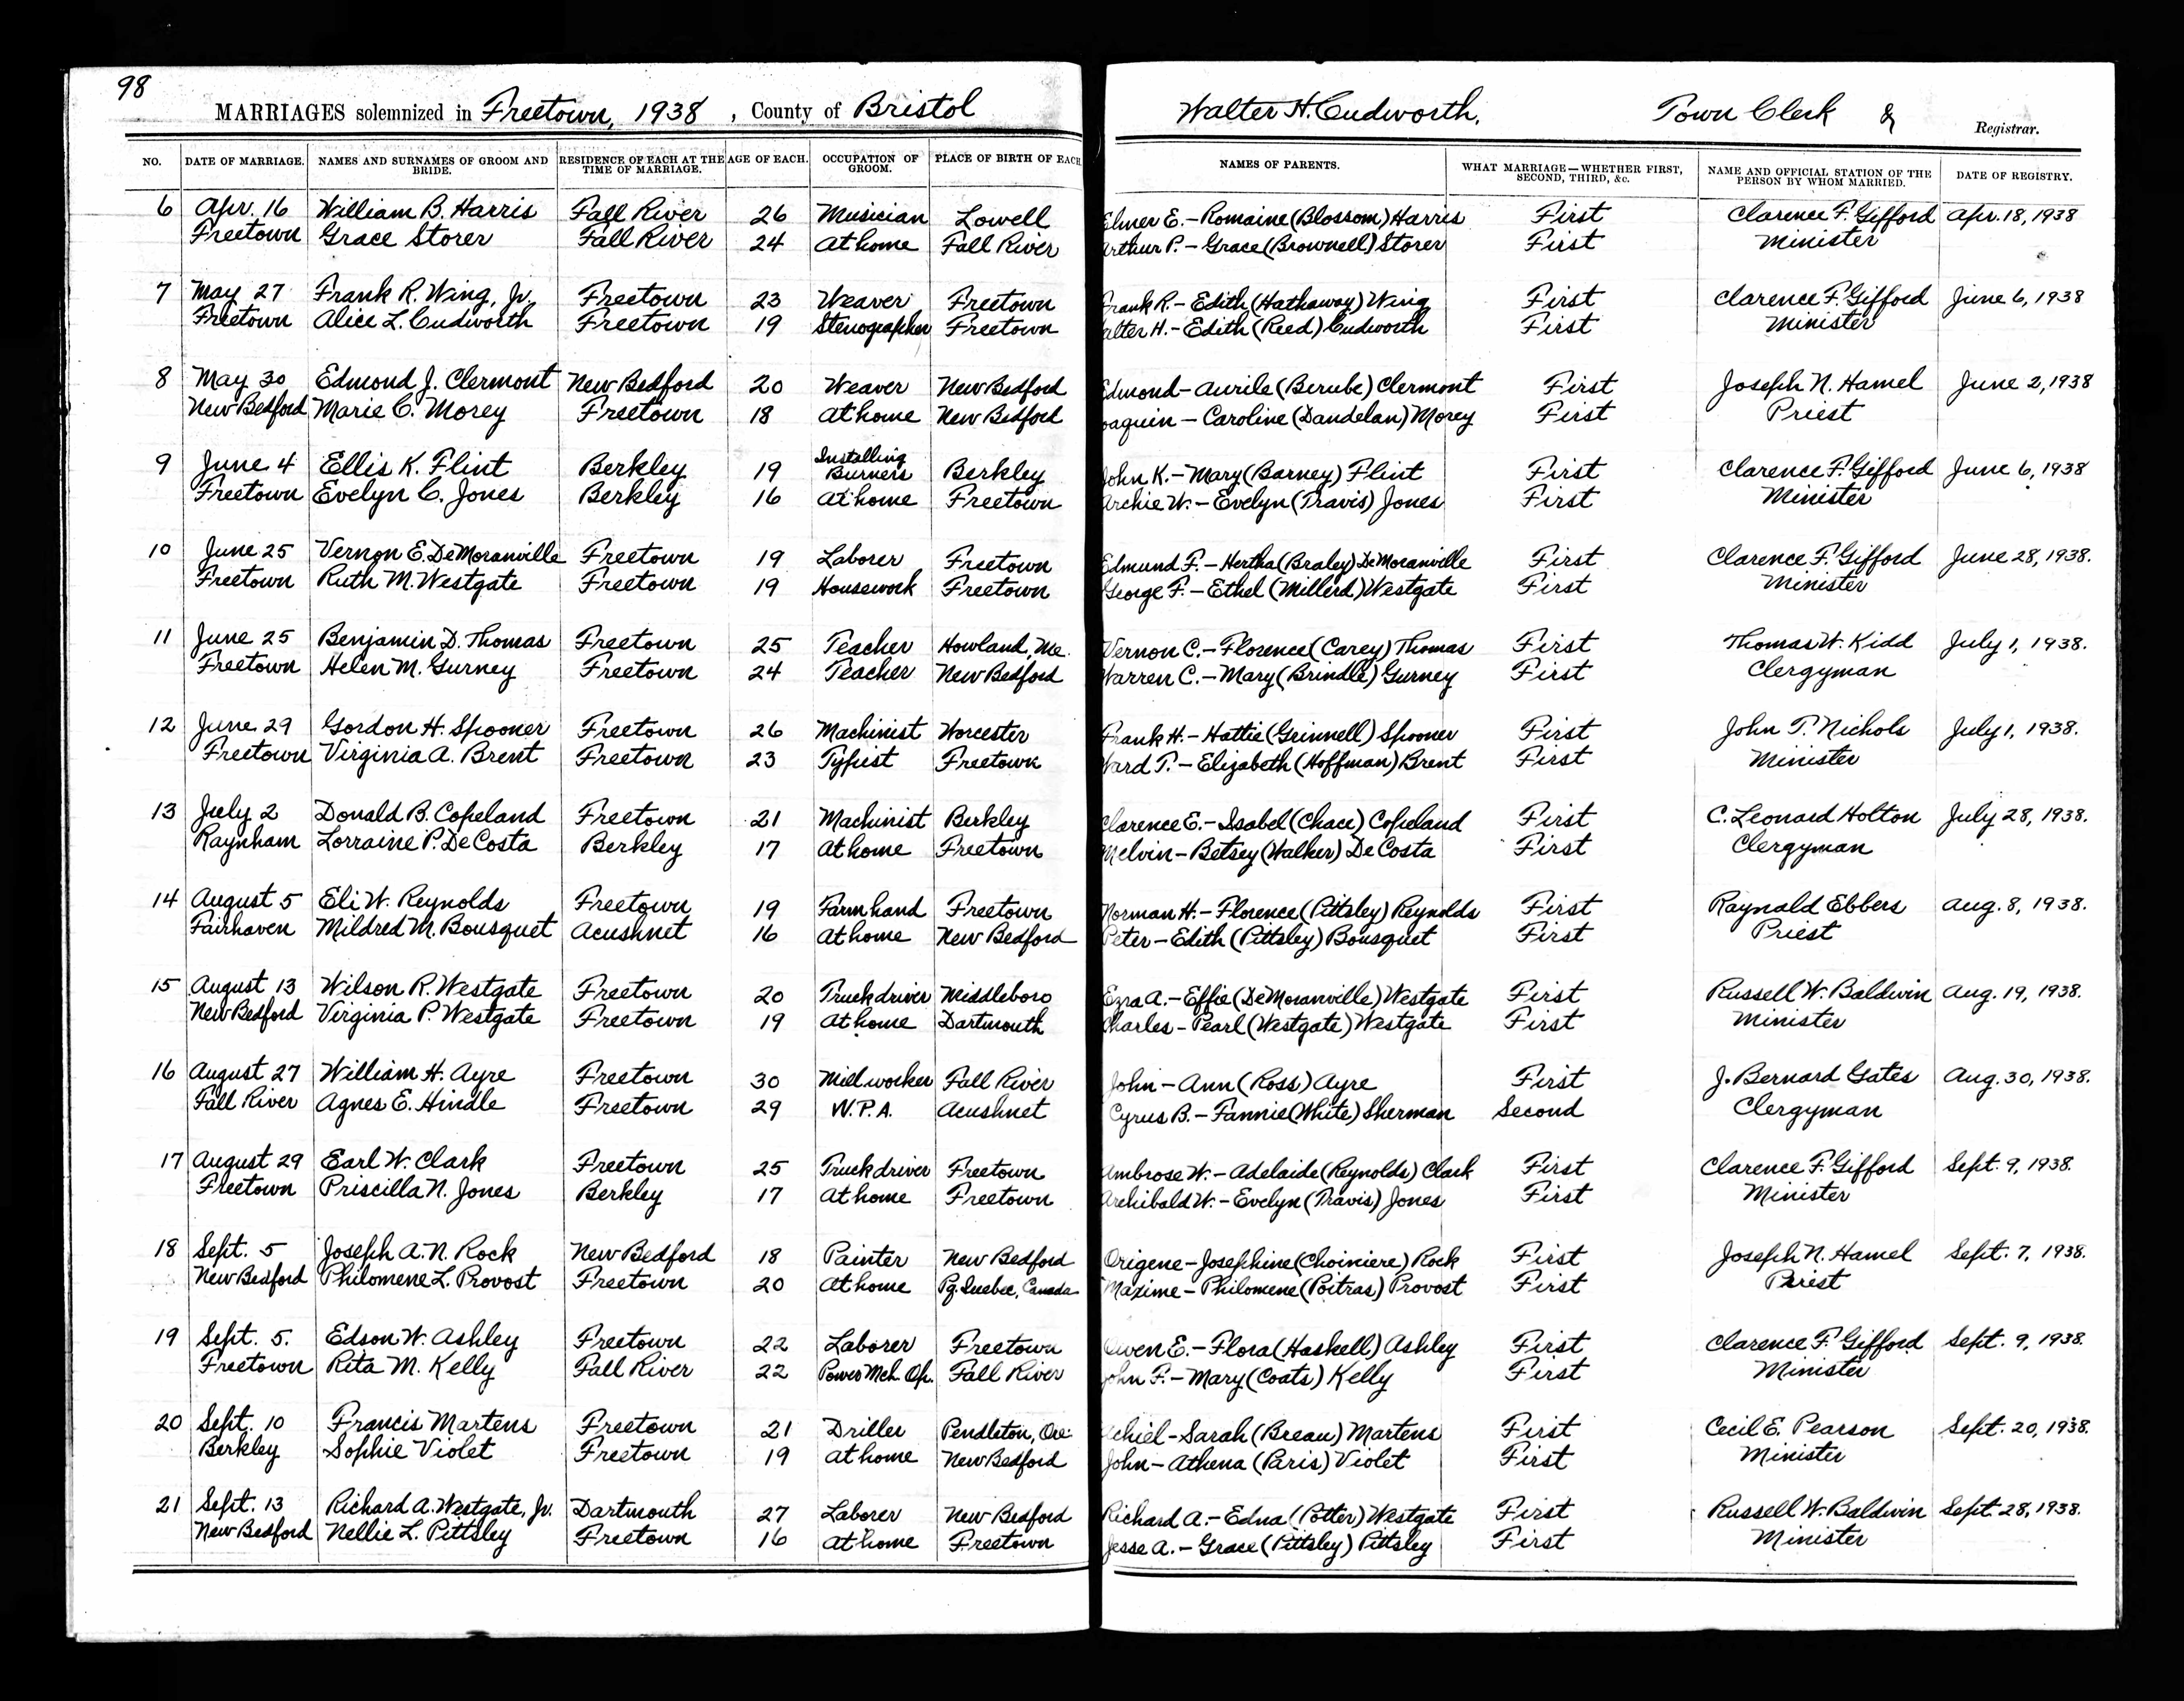 98
MARRIAGES solemnized in Freetown, 1938, County of Bristol Walter H. Cudworth, Town Clerk & Registrar.
NO. DATE OF MARRIAGE. NAMES AND SURNAMES OF GROOM AND BRIDE. RESIDENCE OF EACH AT THE TIME OF MARRIAGE. AGE OF EACH. OCCUPATION OF GROOM. PLACE OF BIRTH OF EACH NAMES OF PARENTS. WHAT MARRIAGE—WHETHER FIRST, SECOND, THIRD, &c. NAME AND OFFICIAL STATION OF THE PERSON BY WHOM MARRIED. DATE OF REGISTRY.
6 Apr. 16 William B. Harris Fall River 26 Musician Lowell Elmer E.- Romaine (Blossom) Harris First Clarence F. Gifford Apr. 18, 1938
Freetown Grace Storer Fall River 24 At home Fall River Arthur P.- Grace (Brownell) Storer First Minister
7 May 27 Frank R. Wing, Jr. Freetown 23 Weaver Freetown Frank R.- Edith (Hathaway) Wing First Clarence F. Gifford June 6, 1938
Freetown Alice L. Cudworth Freetown 19 Stenographer Freetown alter H.- Edith (Reed) Cudworth First Minister
8 May 30 Edmond J. Clermont New Bedford 20 Weaver New Bedford Edmond- Aurile (Berube) Clermont First Joseph N. Hamel June 2, 1938
New Bedford Marie C. Morey Freetown 18 At home New Bedford oaquin - Caroline (Dandelan) Morey First Priest
9 June 4 Ellis K. Flint Berkley 19 Installing Burners Berkley John K.- Mary (Barney) Flint First Clarence F. Gifford June 6, 1938
Freetown Evelyn C. Jones Berkley 16 At home Freetown Archie W.- Evelyn (Travis) Jones First Minister
10 June 25 Vernon E. DeMoranville Freetown 19 Laborer Freetown Edmund F.- Hertha (Braley) DeMoranville First Clarence F. Gifford June 28, 1938.
Freetown Ruth M. Westgate Freetown 19 Housework Freetown George F.- Ethel (Millerd) Westgate First Minister
11 June 25 Benjamin D. Thomas Freetown 25 Teacher Howland, Me. Vernon C.- Florence (Carey) Thomas First Thomas W. Kidd July 1, 1938.
Freetown Helen M. Gurney Freetown 24 Teacher New Bedford Warren C.- Mary (Brindle) Gurney First Clergyman
12 June 29 Gordon H. Spooner Freetown 26 Machinist Worcester Frank H.- Hattie (Grinnell) Spooner First John T. Nichols July 1, 1938.
Freetown Virginia A. Brent Freetown 23 Typist Freetown Ward T.- Elizabeth (Hoffman) Brent First Minister
13 July 2 Donald B. Copeland Freetown 21 Machinist Berkley Clarence E.- Isabel (Chace) Copeland First C. Leonard Holton July 28, 1938.
Raynham Lorraine P. DeCosta Berkley 17 At home Freetown Melvin- Betsey (Walker) DeCosta First Clergyman
14 August 5 Eli W. Reynolds Freetown 19 Farm hand Freetown Norman H.- Florence (Pittsley) Reynolds First Raynald Ebbers Aug. 8, 1938.
Fairhaven Mildred M. Bousquet Acushnet 16 At home New Bedford Peter- Edith (Pittsley) Bousquet First Priest
15 August 13 Wilson R. Westgate Freetown 20 Truck driver Middleboro Ezra A.- Effie (DeMoranville) Westgate First Russell W. Baldwin Aug. 19, 1938.
New Bedford Virginia P. Westgate Freetown 19 At home Dartmouth Charles- Pearl (Westgate) Westgate First Minister
16 August 27 William H. Ayre Freetown 30 Mill worker Fall River John- Ann (Ross) Ayre First J. Bernard Gates Aug. 30, 1938.
Fall River Agnes E. Hindle Freetown 29 W.P.A. Acushnet Cyrus B.- Fannie (White) Sherman Second Clergyman
17 August 29 Earl W. Clark Freetown 25 Truck driver Freetown Ambrose W.- Adelaide (Reynolds) Clark First Clarence F. Gifford Sept. 9, 1938.
Freetown Priscilla N. Jones Berkley 17 At home Freetown Archibald W.- Evelyn (Travis) Jones First Minister
18 Sept. 5 Joseph A. N. Rock New Bedford 18 Painter New Bedford Origene- Josephine (Choiniere) Rock First Joseph N. Hamel Sept. 7, 1938.
New Bedford Philomene L. Provost Freetown 20 At home Pq. Quebec, Canada Maxime- Philomene (Poitras) Provost First Priest
19 Sept. 5. Edson W. Ashley Freetown 22 Laborer Freetown Owen E.- Flora (Haskell) Ashley First Clarence F. Gifford Sept. 9, 1938.
Freetown Rita M. Kelly Fall River 22 Power Mch. Op. Fall River John F.- Mary (Coats) Kelly First Minister
20 Sept. 10 Francis Martens Freetown 21 Driller Pendleton, Ore. chiel- Sarah (Breau) Martens First Cecil E. Pearson Sept. 20, 1938.
Berkley Sophie Violet Freetown 19 At home New Bedford John- Athena (Paris) Violet First Minister
21 Sept. 13 Richard A. Westgate, Jr. Dartmouth 27 Laborer New Bedford Richard A.- Edna (Potter) Westgate First Russell W. Baldwin Sept. 28, 1938.
New Bedford Nellie L. Pittsley Freetown 16 At home Freetown Jesse A.- Grace (Pittsley) Pittsley First Minister